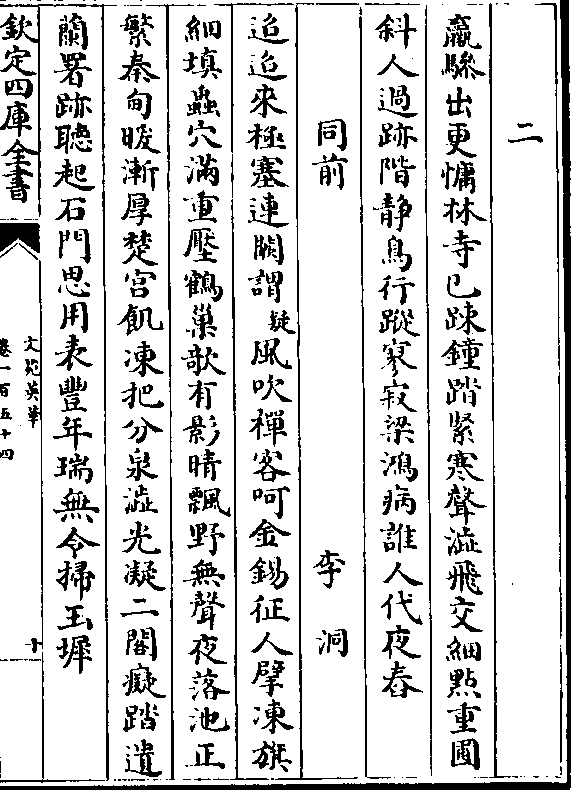 二
羸驂出更慵林寺已踈鐘踏緊寒聲澁飛交細㸃重圃
斜人過跡階静鳥行蹤寥寂梁鴻病誰人代夜舂
同前 李洞
迢迢來極塞連闕謂疑風吹禪客呵金錫征人擘凍旗
細填蟲穴滿重壓鶴巢歌有影晴飄野無聲夜落池正
繁秦甸暖漸厚楚宫飢凍把分泉澁光凝二閣癡踏遺
蘭署跡聴起石門思用表豐年瑞無令掃玉墀
欽定四庫全書
文苑英華
卷一百五十四
十